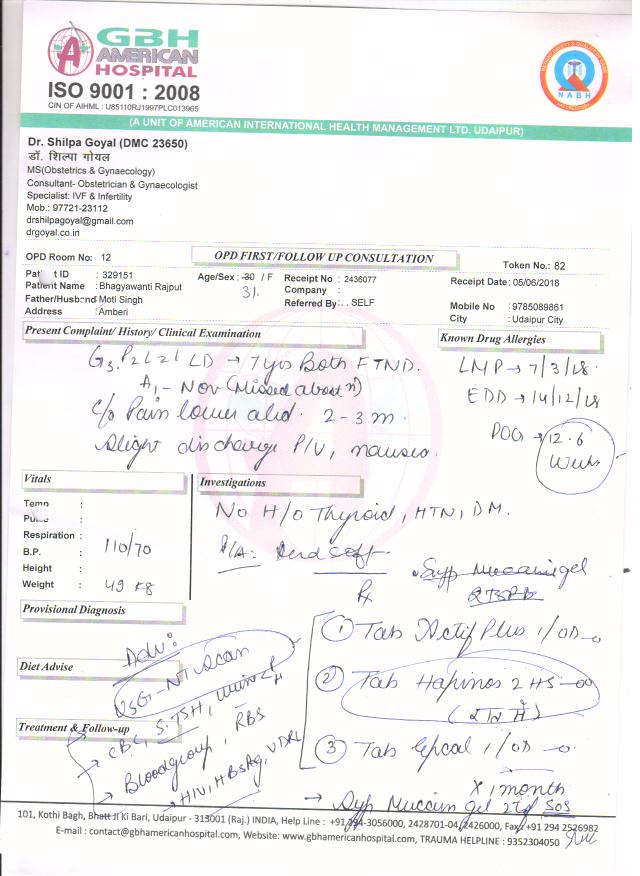 GBH
AMERICAN
HOSPITAL
ISO 9001 : 2008
CIN OF AIHML : U85110RJ1997PLC013965
NABH
(A UNIT OF AMERICAN INTERNATIONAL HEALTH MANAGEMENT LTD. UDAIPUR)
Dr. Shilpa Goyal (DMC 23650)
डॉ. शिल्पा गोयल
MS(Obstetrics & Gynaecology)
Consultant- Obstetrician & Gynaecologist
Specialist: IVF & Infertility
Mob.: 97721-23112
drshilpagoyal@gmail.com
drgoyal.co.in
OPD Room No: 12 OPD FIRST/FOLLOW UP CONSULTATION Token No.: 82
Pat t ID : 329151 Age/Sex : 30 / F Receipt No : 2436077 Receipt Date: 05/06/2018
31.
Patient Name : Bhagyawanti Rajput Company :
Father/Husband Moti Singh Referred By: . . SELF Mobile No : 9785089861
Address : Amberi City : Udaipur City
Present Complaint/ History/ Clinical Examination Known Drug Allergies
G3 P2 L2 LD → 7 yrs Both FTND. LMP → 7/3/18.
A1 - Nov (Missed abortn) EDD → 14/12/18
C/o Pain lower abd. 2-3 m. POG → 12.6 Weeks
Slight discharge P/V, nausea.
Vitals Investigations
Temp :
Pulse :
Respiration :
B.P. : 110/70
Height :
Weight : 49 kg
No H/o Thyroid, HTN, DM.
P/A: soft
Syp Mucaine gel
Rx
Provisional Diagnosis
Adv:
USG-NT Scan
Diet Advise
Treatment & Follow-up
CBC, S.TSH, Urine
Bloodgroup, RBS
HIV, HBsAg, VDRL
1 Tab Plus 1/OD
2 Tab Hapinos 2 HS
3 Tab 1/OD
X 1 month
→ Syp Mucain gel SOS
101, Kothi Bagh, Bhatt Ji Ki Bari, Udaipur - 313001 (Raj.) INDIA, Help Line : +91 294-3056000, 2428701-04, 2426000, Fax : +91 294 2526982
E-mail : contact@gbhamericanhospital.com, Website: www.gbhamericanhospital.com, TRAUMA HELPLINE : 9352304050